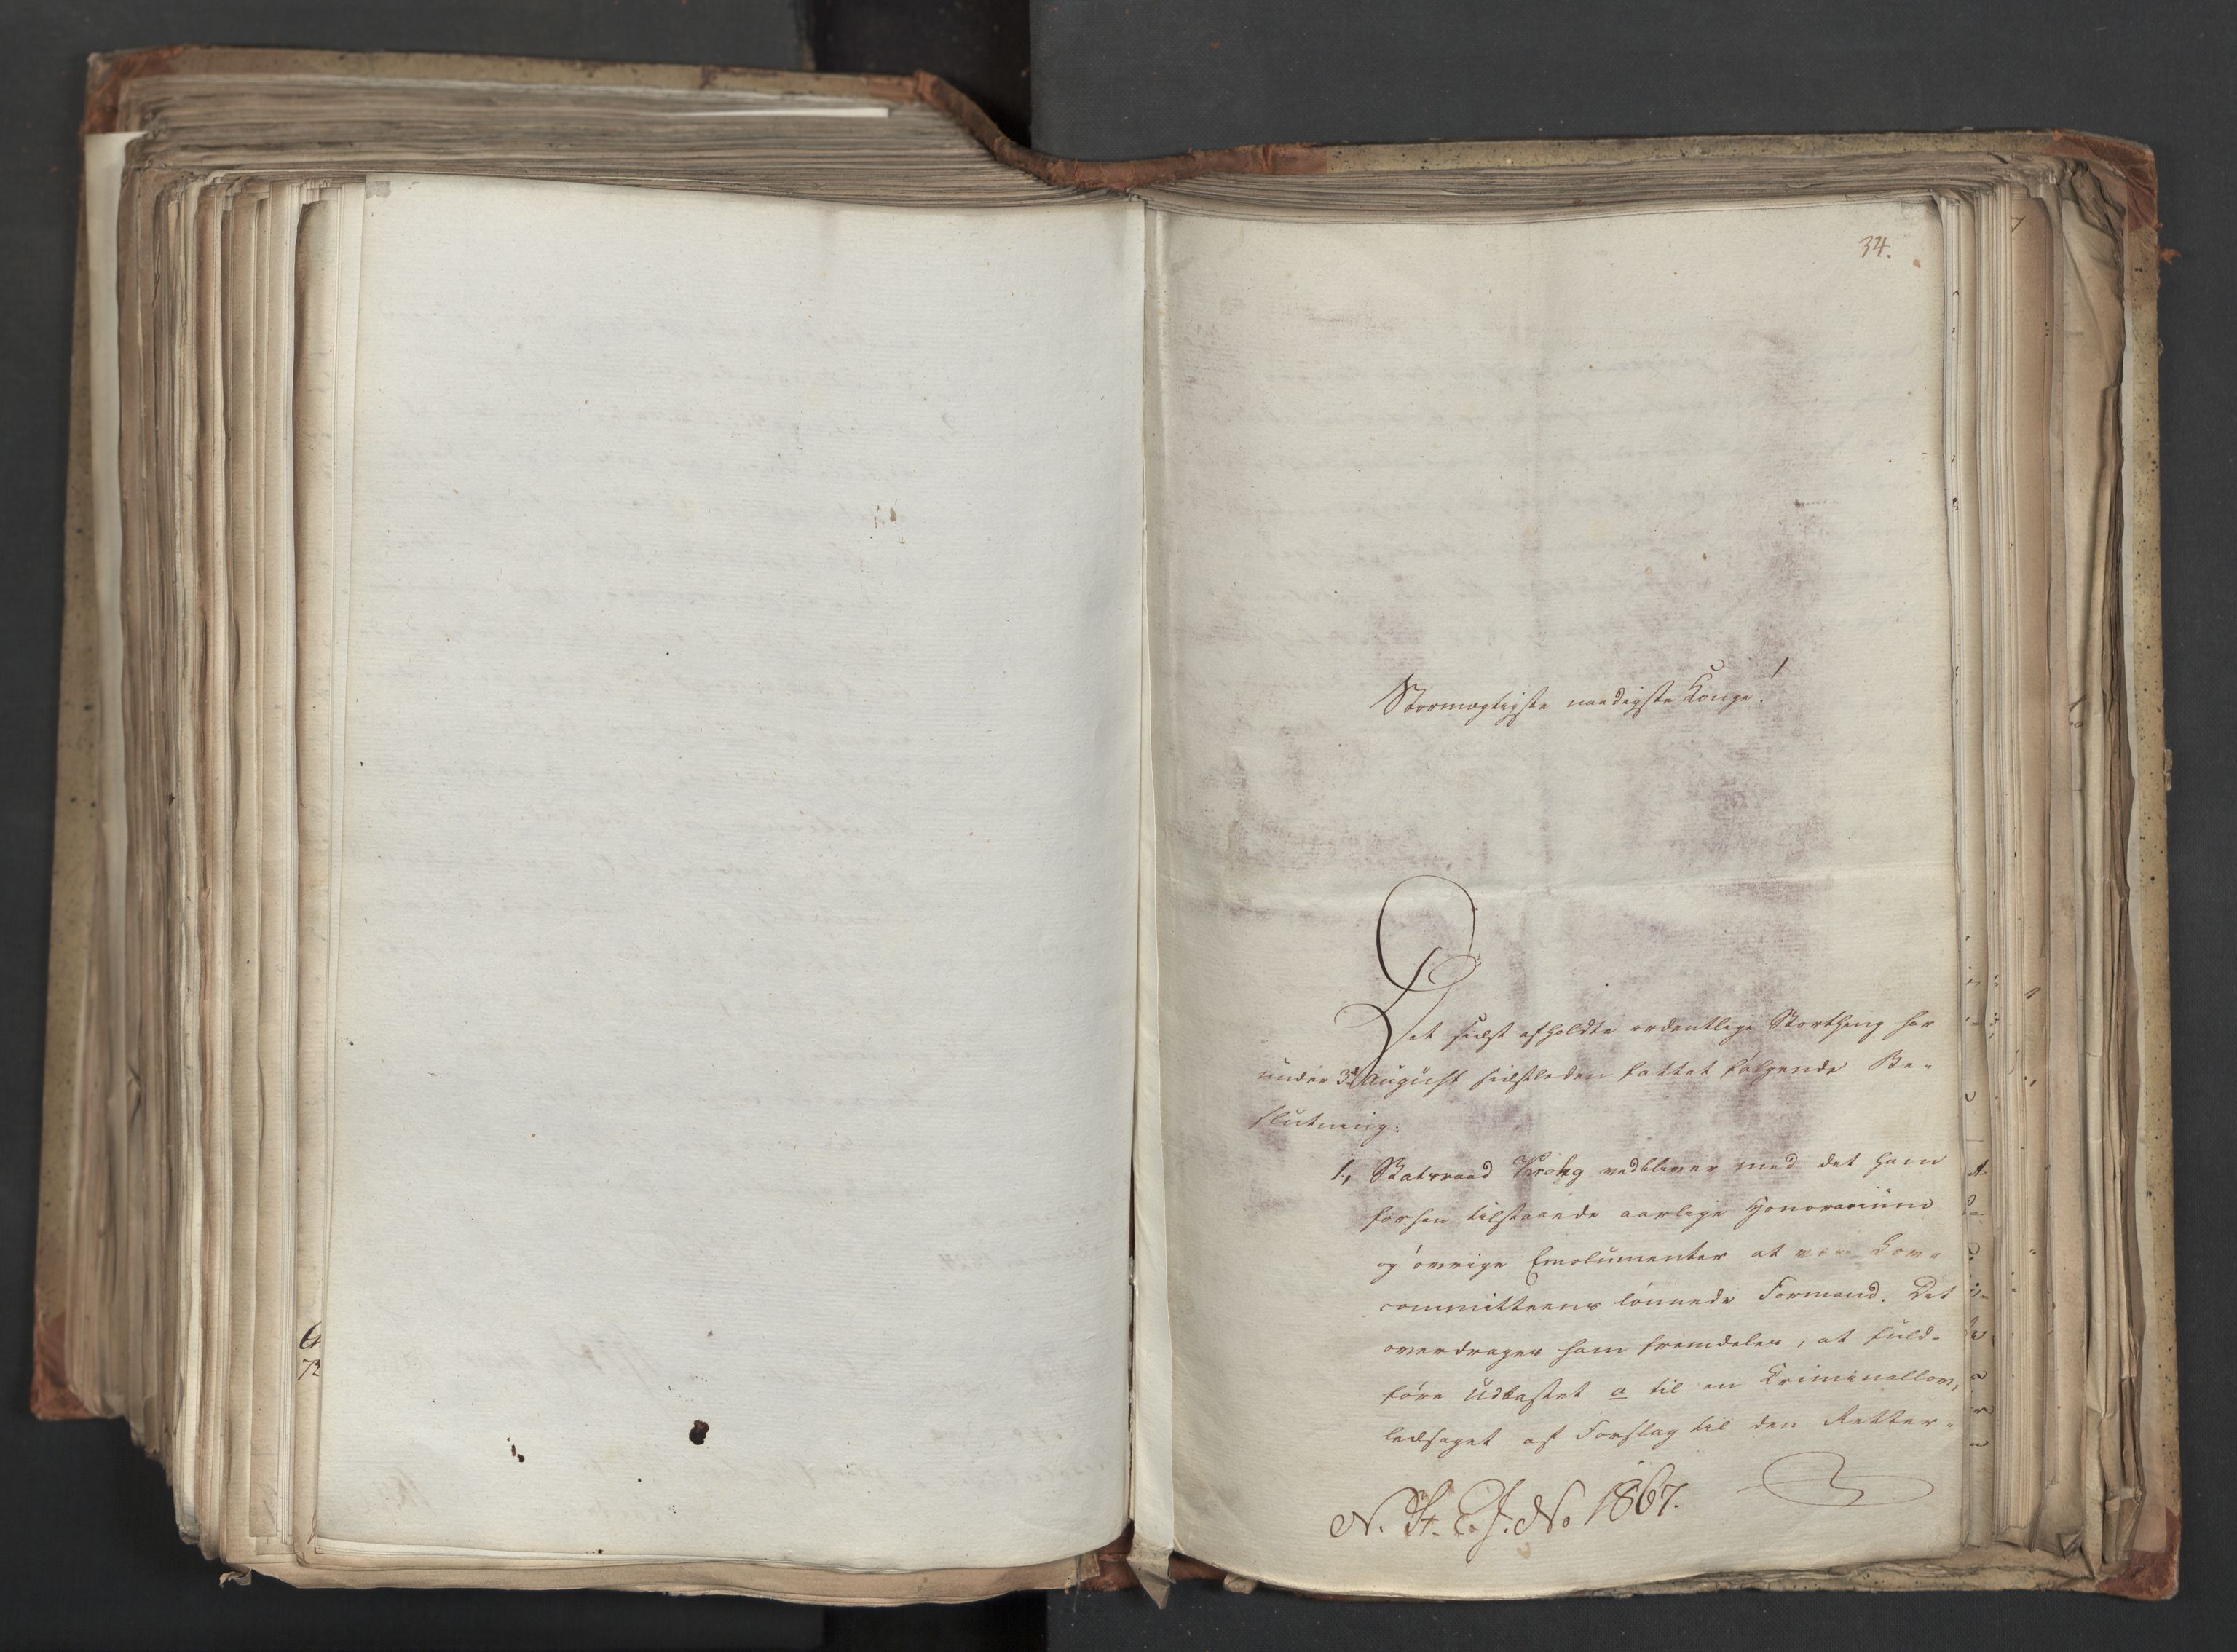 34.
Stormægtigste naadigste Konge!
Det sidst afholdte ordentlige Storthing har
under 3d August sidstleden fattet følgende Be-
slutning:
1, Statsraad Krohg vedbliver med det ham
forhen tilstaaede aarlige Honorarium
og øvrige Emolumenter at være Lov-
committeens lønnede Formand. Det
overdrages ham fremdeles, at fuld-
føre Udkastet a til en Criminallov,
ledsaget af Forslag til den Retter-
N. St. E. J. No 1867.